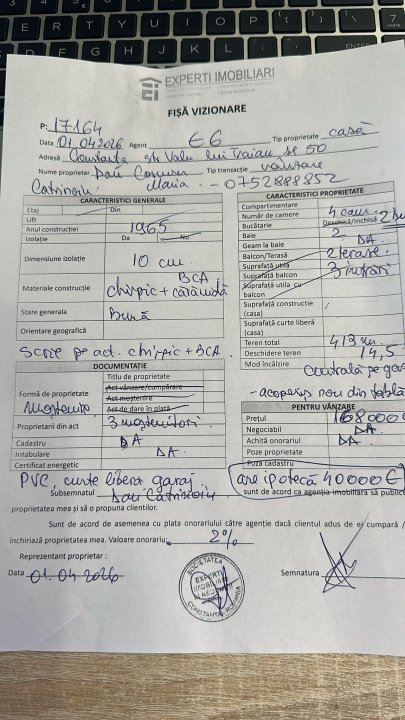 EXPERTI IMOBILIARI
FIȘĂ VIZIONARE
P: 17164
Data 01.04.2026 Agent E6 Tip proprietate casă
Adresă Constanța str Valu lui Traian nr 50
Nume proprietar Dan Tip tranzacție vânzare
Maria - 0752888852
CARACTERISTICI GENERALE
Etaj Din
Lift
Anul construcției 1965
Izolație Da Nu
Dimensiune izolație 10 cm
Materiale construcție chirpic + cărămidă BCA
Stare generala Bună
Orientare geografică
Scrie pe act. chirpic + BCA
DOCUMENTAȚIE
Formă de proprietate
Titlu de proprietate
Act vânzare/cumpărare
Act moștenire
Act de dare în plată
Moștenire
Proprietarii din act 3 moștenitori
Cadastru DA
Intabulare DA
Certificat energetic
CARACTERISTICI PROPRIETATE
Compartimentare
Număr de camere 4 cam.
Bucătărie Deschisă/Închisă 2
Baie 2
Geam la baie DA
Balcon/Terasă 2 terase
Suprafață utilă 3 intrări
Suprafață balcon
Suprafață utila cu balcon
Suprafață construcție (casa)
Suprafață curte liberă (casă)
Teren total 413 m.
Deschidere teren 14,5
Mod încălzire Centrală pe gaz
- acoperiș nou din tablă
PENTRU VÂNZARE
Prețul 168000
Negociabil DA
Achită onorariul DA
Poze proprietate
Poza cadastru
PVC, curte libera garaj
are ipotecă 40000 €
Subsemnatul Dan sunt de acord ca agenția imobiliara să public
proprietatea mea și să o propuna clientilor.
Sunt de acord de asemenea cu plata onorariului către agenție dacă clientul adus de ei cumpara /
închiriază proprietatea mea. Valoare onorariu: 2%
Reprezentant proprietar :
Data 01.04 2026 Semnatura
SOCIETATEA
EXPERTI
IMOBILIARI
CONSTANTA, ROMANIA